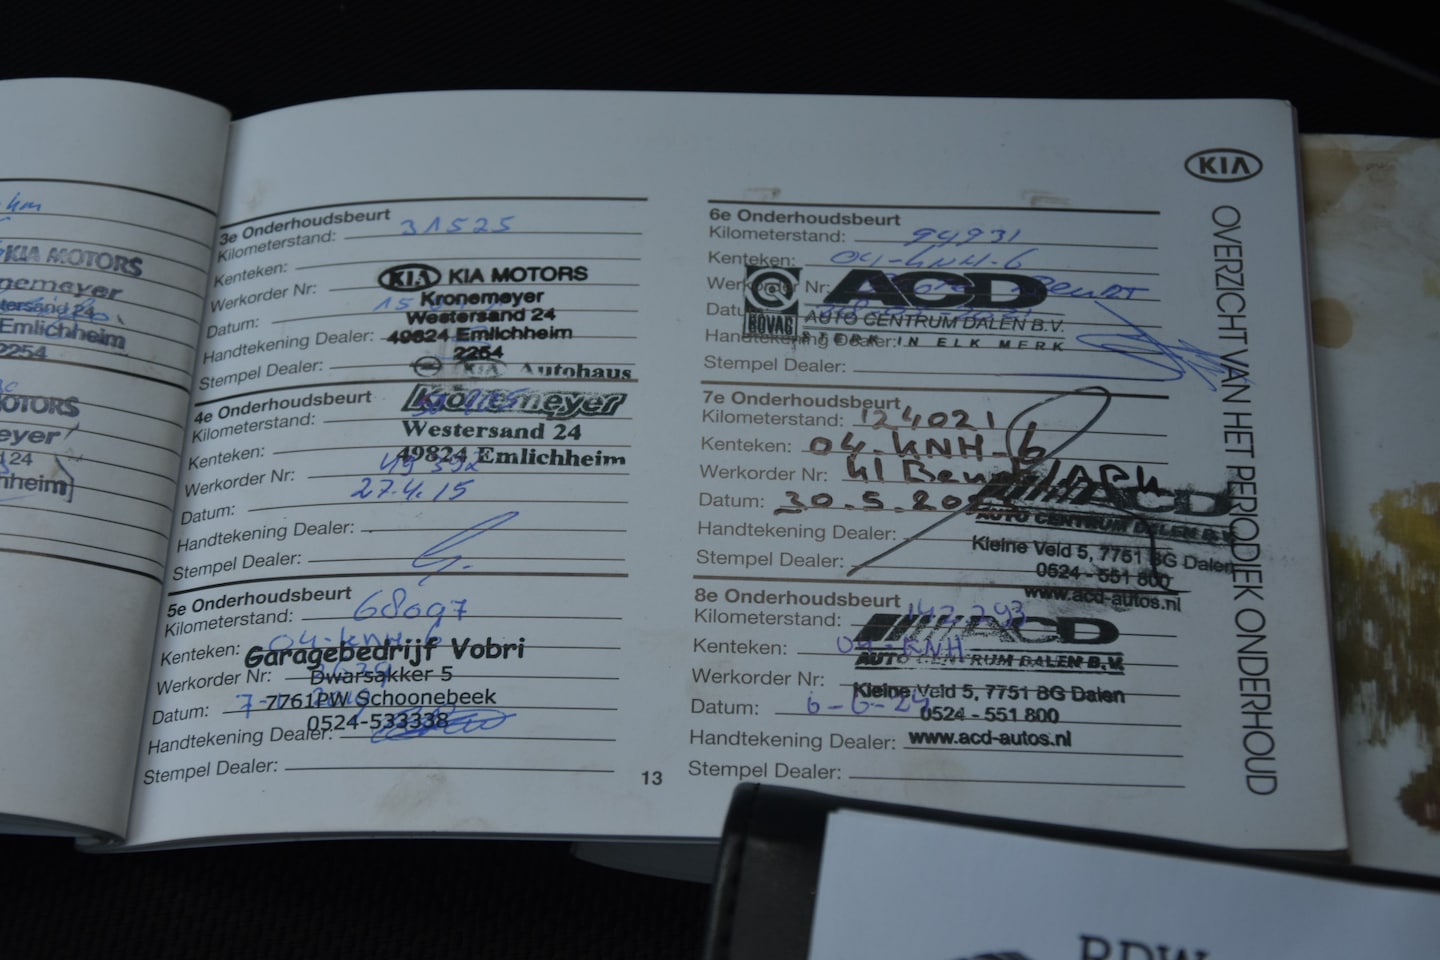 hm
KIA MOTORS
Emlichheim
2254
KIA
OVERZICHT VAN HET PERIODIEK ONDERHOUD
3e Onderhoudsbeurt
Kilometerstand: 31525
Kenteken:
Werkorder Nr:
Datum: 15
Handtekening Dealer:
Stempel Dealer:
KIA KIA MOTORS
Kronemeyer
Westersand 24
49824 Emlichheim
2254
4e Onderhoudsbeurt
Kilometerstand:
Kenteken:
Werkorder Nr:
Datum: 27.4.15
Handtekening Dealer:
Stempel Dealer:
KIA Autohaus
Kronemeyer
Westersand 24
49824 Emlichheim
5e Onderhoudsbeurt
Kilometerstand: 68097
Kenteken: 04-KNH-6
Werkorder Nr:
Datum:
Handtekening Dealer:
Stempel Dealer:
Garagebedrijf Vobri
Dwarsakker 5
7761PW Schoonebeek
0524-533338
13
6e Onderhoudsbeurt
Kilometerstand: 94931
Kenteken: 04-KNH-6
Werkorder Nr:
Datum:
Handtekening Dealer:
Stempel Dealer:
BOVAG
ACD
AUTO CENTRUM DALEN B.V.
STERK IN ELK MERK
7e Onderhoudsbeurt
Kilometerstand: 124021
Kenteken: 04-KNH-6
Werkorder Nr:
Datum: 30.5.
Handtekening Dealer:
Stempel Dealer:
ACD
AUTO CENTRUM DALEN B.V.
Kleine Veld 5, 7751 BG Dalen
0524 - 551 800
www.acd-autos.nl
8e Onderhoudsbeurt
Kilometerstand: 142.293
Kenteken: 04-KNH
Werkorder Nr:
Datum: 6-6-24
Handtekening Dealer:
Stempel Dealer:
ACD
AUTO CENTRUM DALEN B.V.
Kleine Veld 5, 7751 BG Dalen
0524 - 551 800
www.acd-autos.nl
RDW